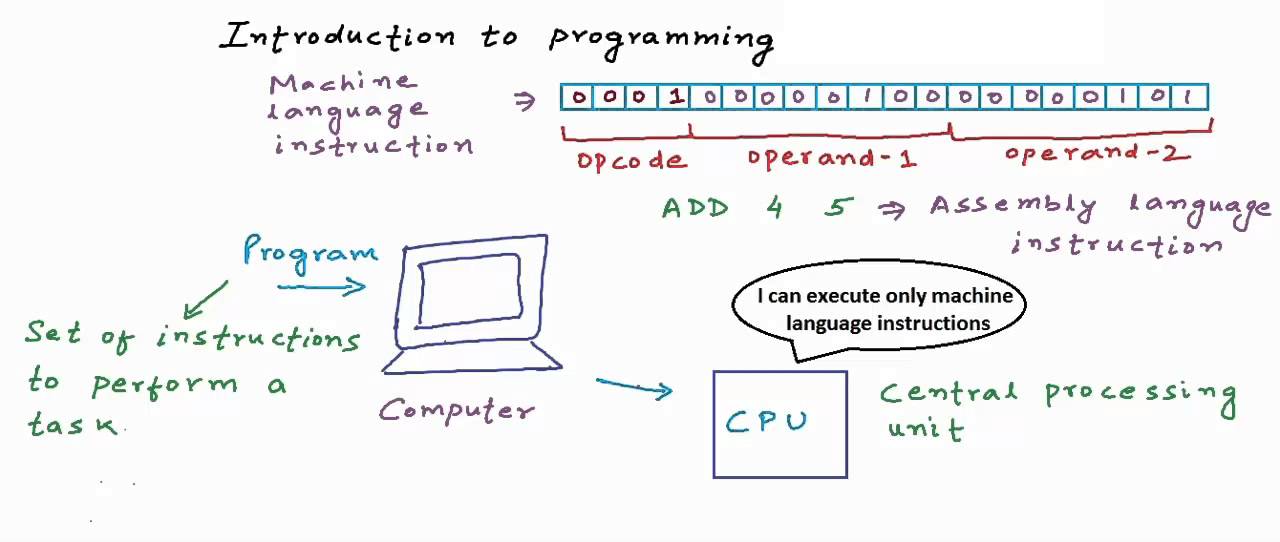 Introduction to programming
Machine
language
instruction
⇒ 0 0 0 1 0 0 0 0 0 1 0 0 0 0 0 0 1 0 1
opcode operand-1 operand-2
ADD 4 5 ⇒ Assembly language
instruction
Program
Set of instructions
to perform a
task.
Computer
I can execute only machine
language instructions
CPU
Central processing
unit